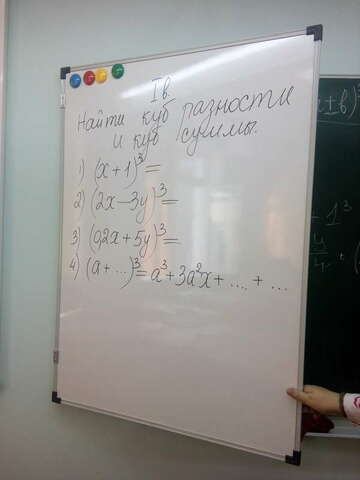 I в.
Найти куб разности
и куб суммы.
1) (x+1)³=
2) (2x-3y)³=
3) (0,2x+5y)³=
4) (a+...)³=a³+3a²x+....+...
a±b)³
1³